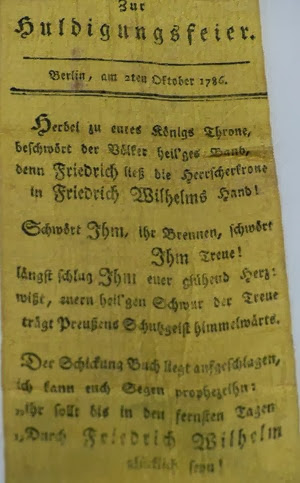 Zur
Huldigungsfeier.
Berlin, am 2ten Oktober 1786.
Herbei zu eures Königs Throne,
beschwört der Völker heil'ges Band,
denn Friedrich ließ die Herrscherkrone
in Friedrich Wilhelms Hand!
Schwört Ihm, ihr Brennen, schwört
Ihm Treue!
längst schlug Ihm euer glühend Herz:
wißt, euern heil'gen Schwur der Treue
trägt Preußens Schutzgeist himmelwärts.
Der Schickung Buch liegt aufgeschlagen,
ich kann euch Segen prophezeihn:
„ihr sollt bis in den fernsten Tagen
„Durch Friedrich Wilhelm
glücklich seyn!